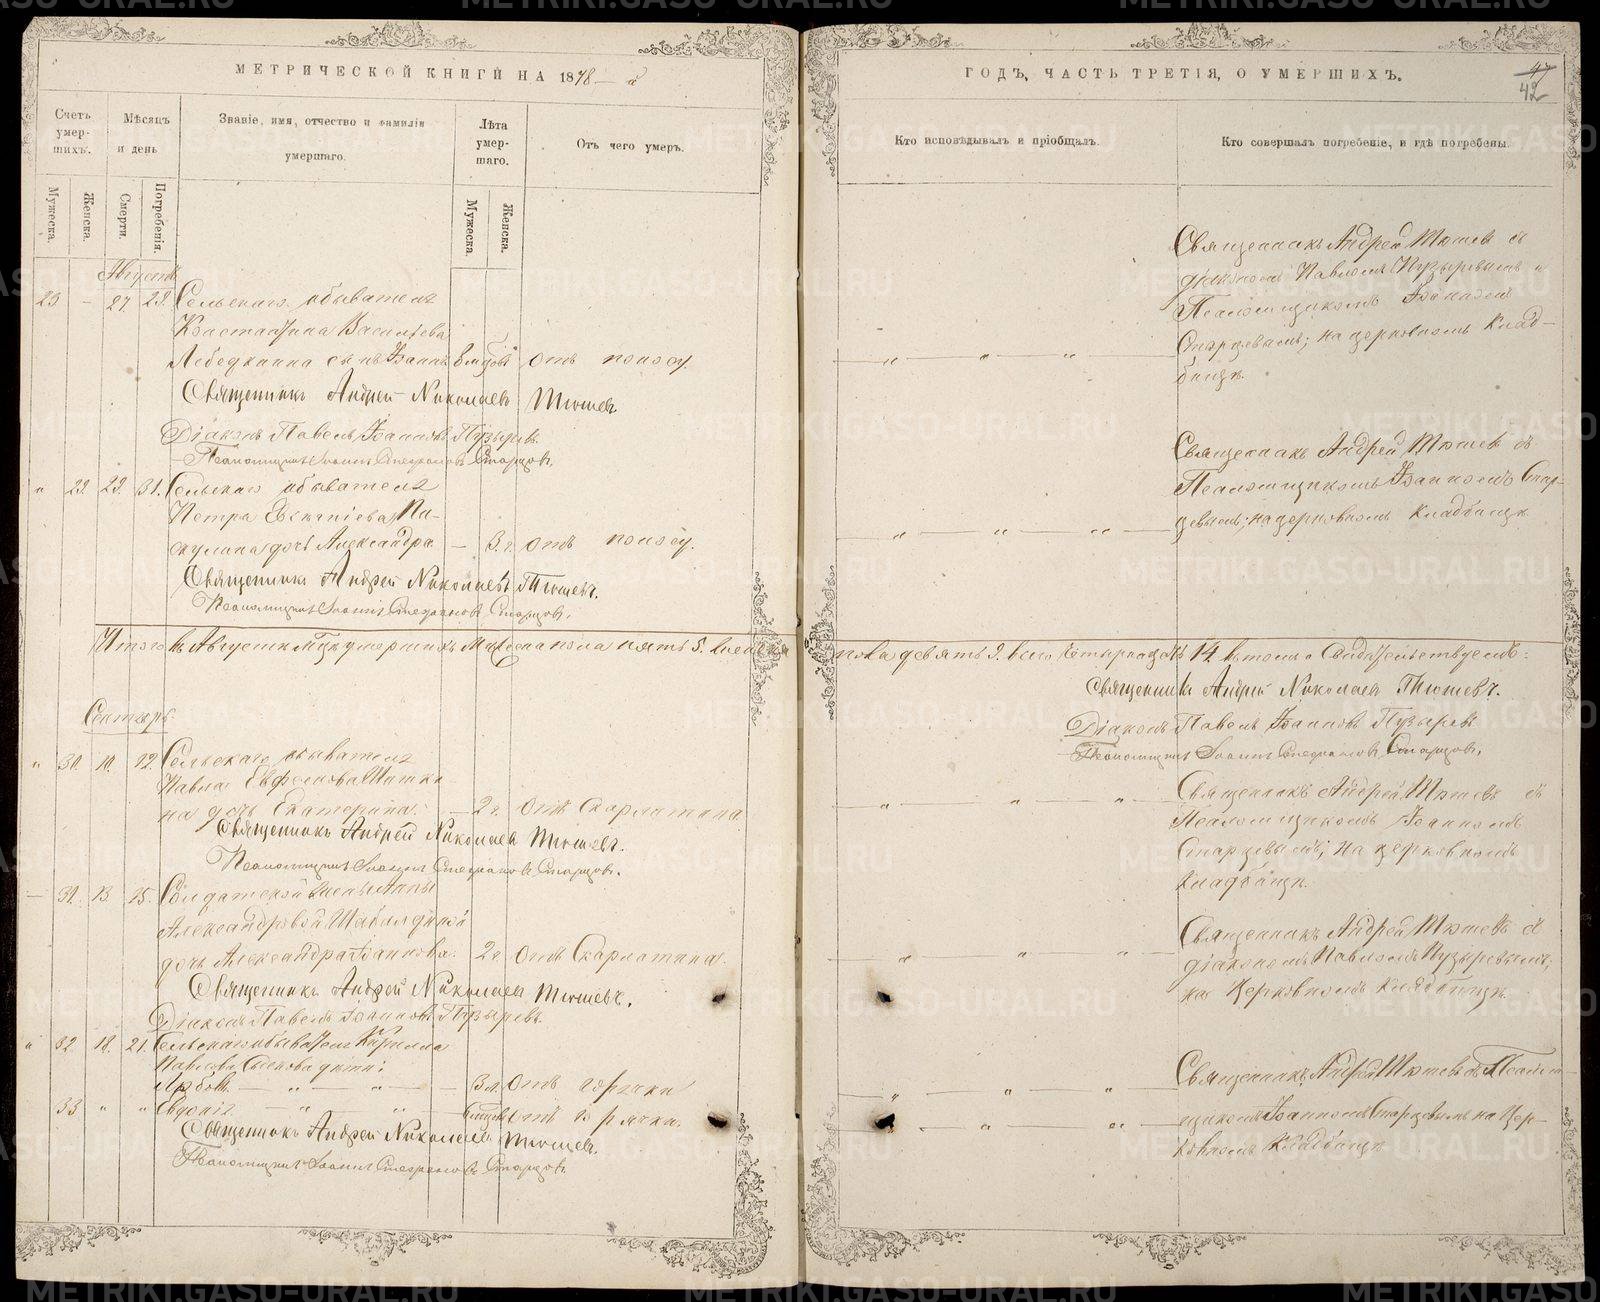 МЕТРИЧЕСКОЙ КНИГИ НА 1878 й
Счетъ умер-шихъ.
Мѣсяцъ и день
Званіе, имя, отчество и фамилія умершаго.
Лѣта умер-шаго.
Отъ чего умеръ.
Мужеска.
Женска.
Смерти.
Погребенія.
Мужеска
Женска.
Августъ
23 — 27. 29. Сельскаго обывателя
Константина Васильева
Лебедкина сынъ Іоаннъ отъ поносу.
Священникъ Андрей Николаевъ Тюшевъ
Діаконъ Павелъ Іоанновъ Пузыревъ.
Псаломщикъ Іоаннъ Стефановъ Старцовъ.
" 29. 29. 31. Сельскаго обывателя
Петра
дочь Александра — 3 г. отъ поносу.
Священникъ Андрей Николаевъ Тюшевъ.
Псаломщикъ Іоаннъ Стефановъ Старцовъ.
Итого въ Августѣ мѣсяцѣ умершихъ Мужеска пола пять 5. женска
Сентябрь
" 30. 10. 12. Сельскаго обывателя
Павла
на дочь Екатерина. — 2 г. отъ Скарлатина
Священникъ Андрей Николаевъ Тюшевъ.
Псаломщикъ Іоаннъ Стефановъ Старцовъ.
— 31. 13. 15. Солдатской жены Анны
Александровой
дочь Александра Іоаннова. 2 г. отъ Скарлатина.
Священникъ Андрей Николаевъ Тюшевъ.
Діаконъ Павелъ Іоанновъ Пузыревъ.
" 32. 18. 21. Сельскаго обывателя Кирилла
Павлова дѣти:
Любовь — " — " — 3 л. отъ горячки
33 " " Евдокія — " — " — отъ горячки.
Священникъ Андрей Николаевъ Тюшевъ.
Псаломщикъ Іоаннъ Стефановъ Старцовъ
ГОДЪ, ЧАСТЬ ТРЕТІЯ, О УМЕРШИХЪ.
47
42
Кто исповѣдывалъ и пріобщалъ.
Кто совершалъ погребеніе, и гдѣ погребены.
Священникъ Андрей Тюшевъ съ
діакономъ Павломъ Пузыревымъ и
Псаломщикомъ Іоанномъ
Старцевымъ; на церковномъ клад-
бищѣ.
Священникъ Андрей Тюшевъ съ
Псаломщикомъ Іоанномъ Стар-
цевымъ; на церковномъ кладбищѣ
пола девять 9. всего четырнадцать 14. въ томъ и свидѣтельствуемъ:
Священникъ Андрей Николаевъ Тюшевъ.
Діаконъ Павелъ Іоанновъ Пузыревъ
Псаломщикъ Іоаннъ Стефановъ Старцовъ.
Священникъ Андрей Тюшевъ съ
Псаломщикомъ Іоанномъ
Старцевымъ; на церковномъ
кладбищѣ.
Священникъ Андрей Тюшевъ съ
діакономъ Павломъ Пузыревымъ;
на Церковномъ кладбищѣ.
Священникъ Андрей Тюшевъ съ Псалом-
щикомъ Іоанномъ Старцевымъ на Цер-
ковномъ кладбищѣ
METRIKI.GASO-URAL.RU